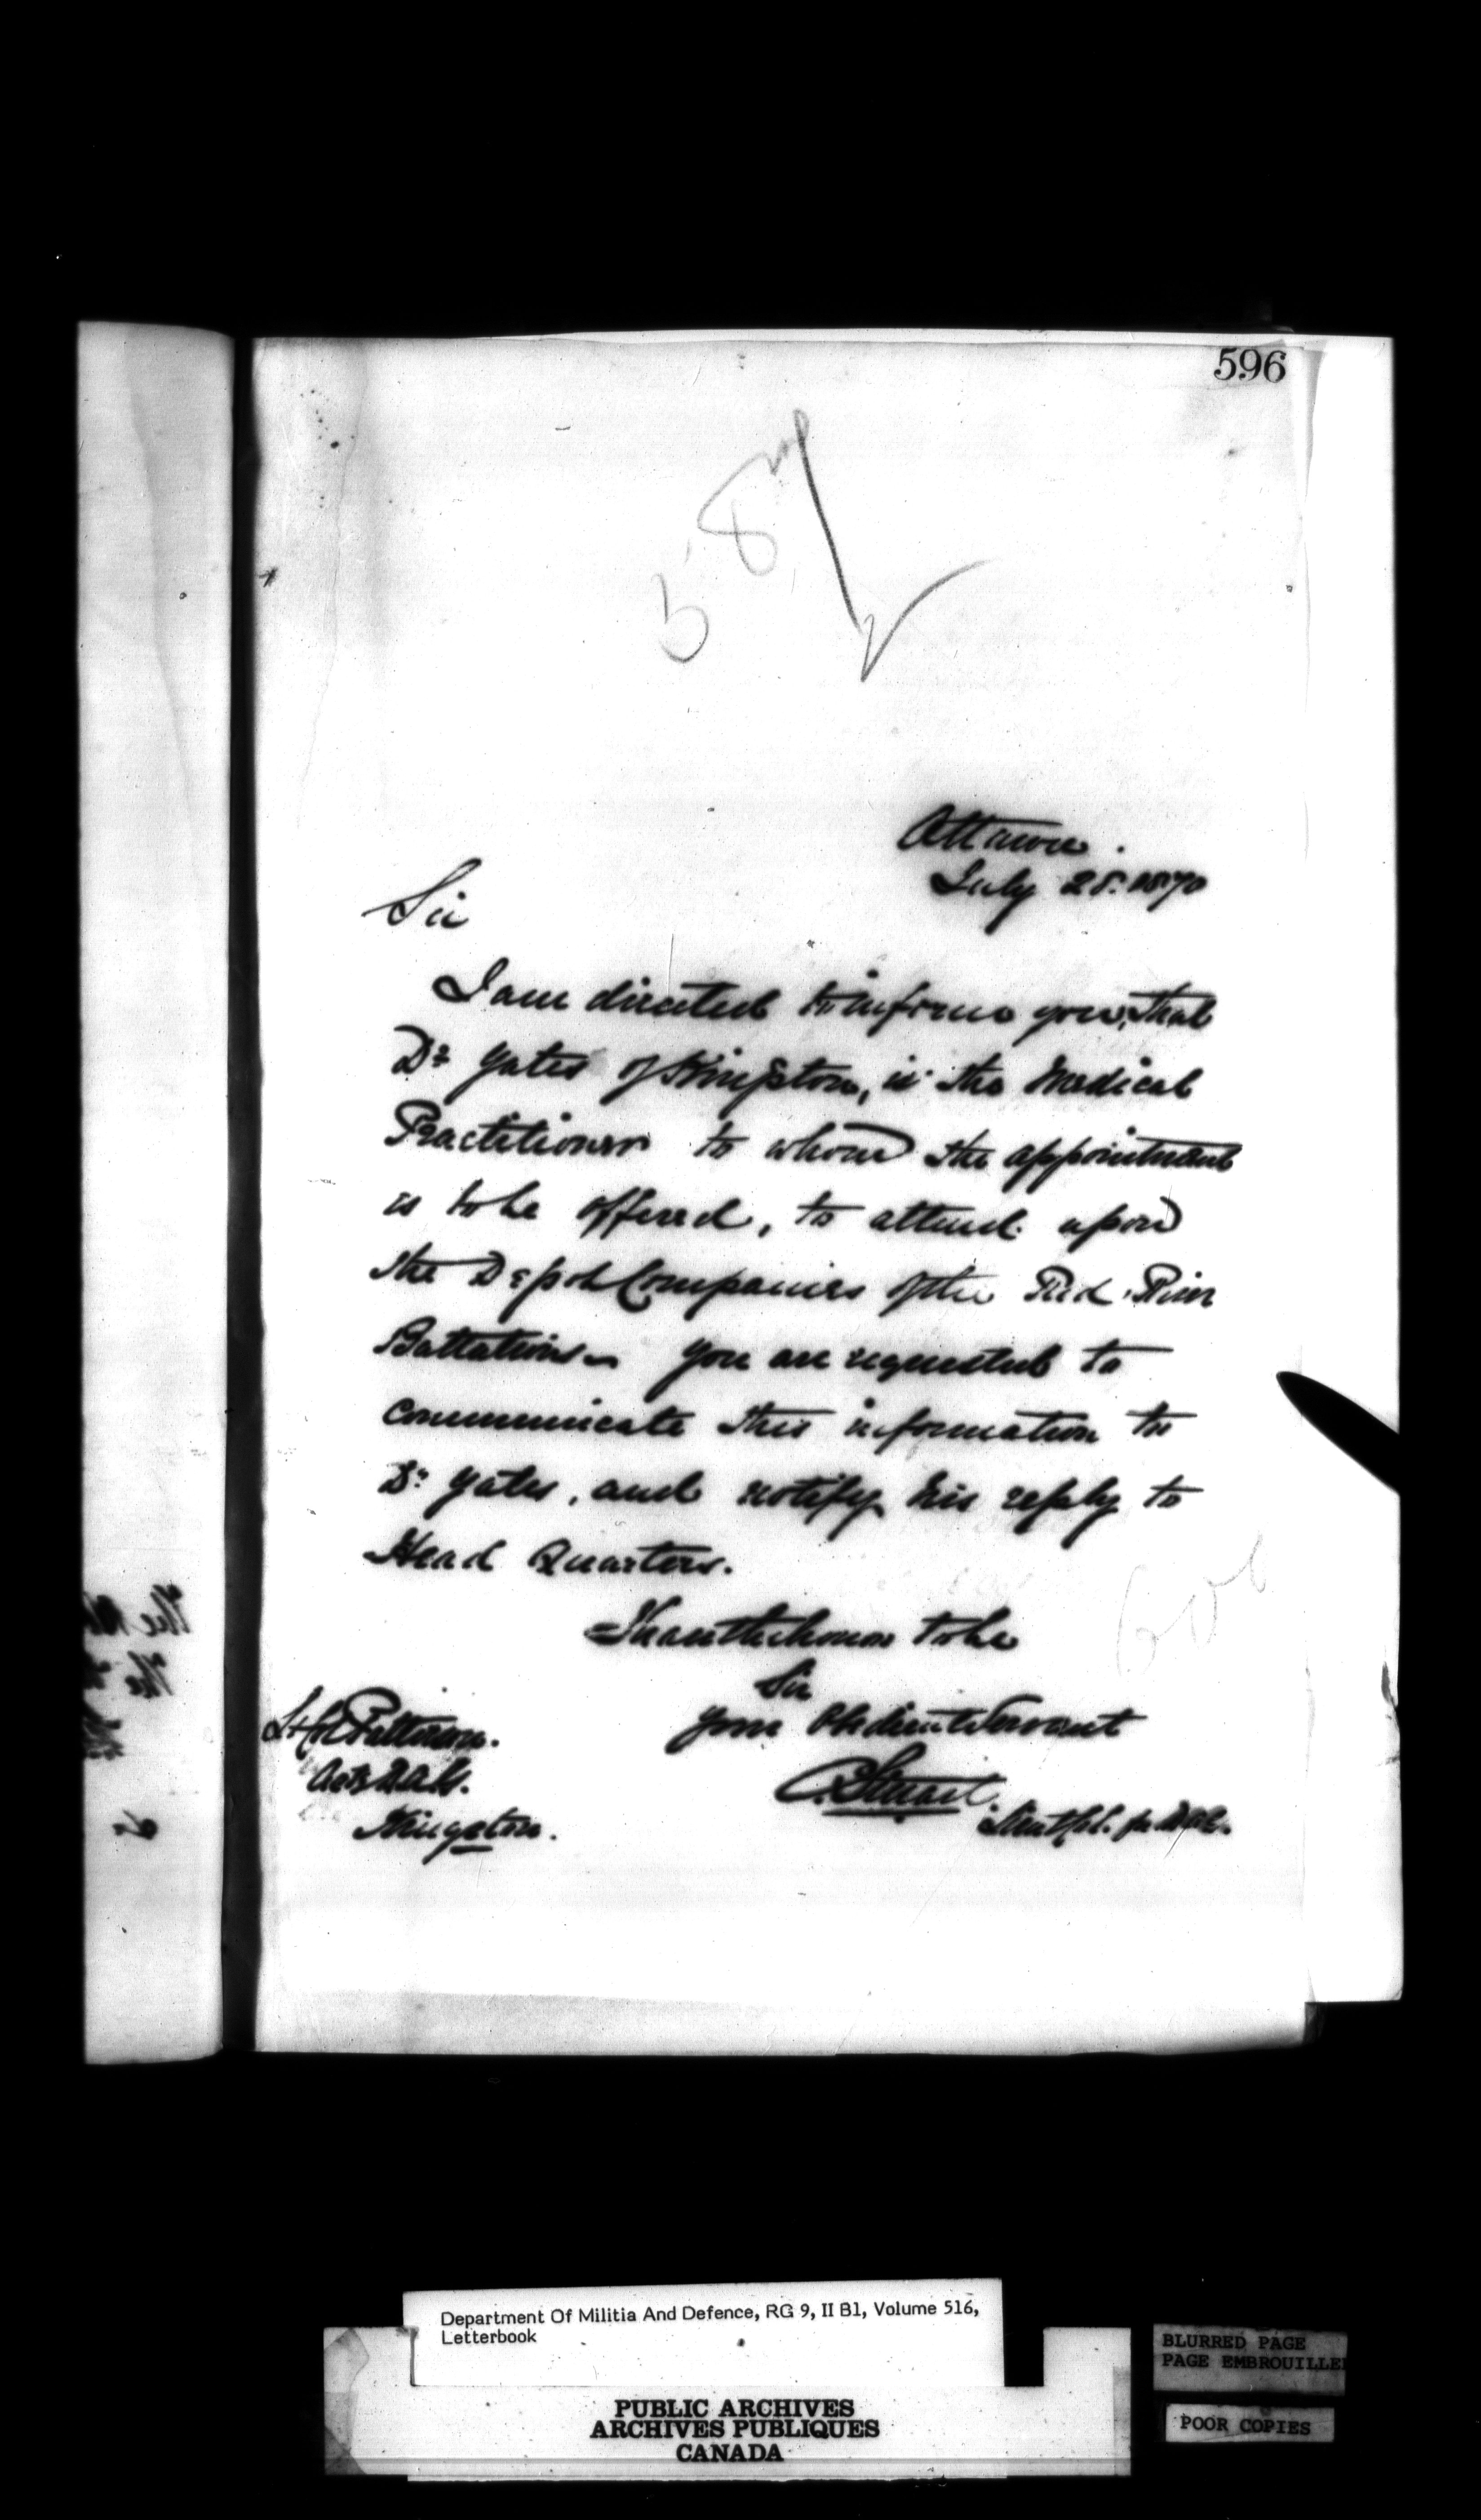 596
58
Ottawa.
July 28. 1870
Sir
I am directed to inform you, that
Dr Yates of Kingston, is the Medical
Practitioner to whom the appointment
is to be offered, to attend upon
the Depot Companies of the Red River
Battalions. You are requested to
communicate this information to
Dr Yates, and notify his reply to
Head Quarters.
I have the honor to be
Sir
Your Obedient Servant
Lt Col Patterson.
Kingston.
C. Stuart
Lieut Col.
606
Department Of Militia And Defence, RG 9, II B1, Volume 516,
Letterbook
PUBLIC ARCHIVES
ARCHIVES PUBLIQUES
CANADA
BLURRED PAGE
PAGE EMBROUILLE
POOR COPIES